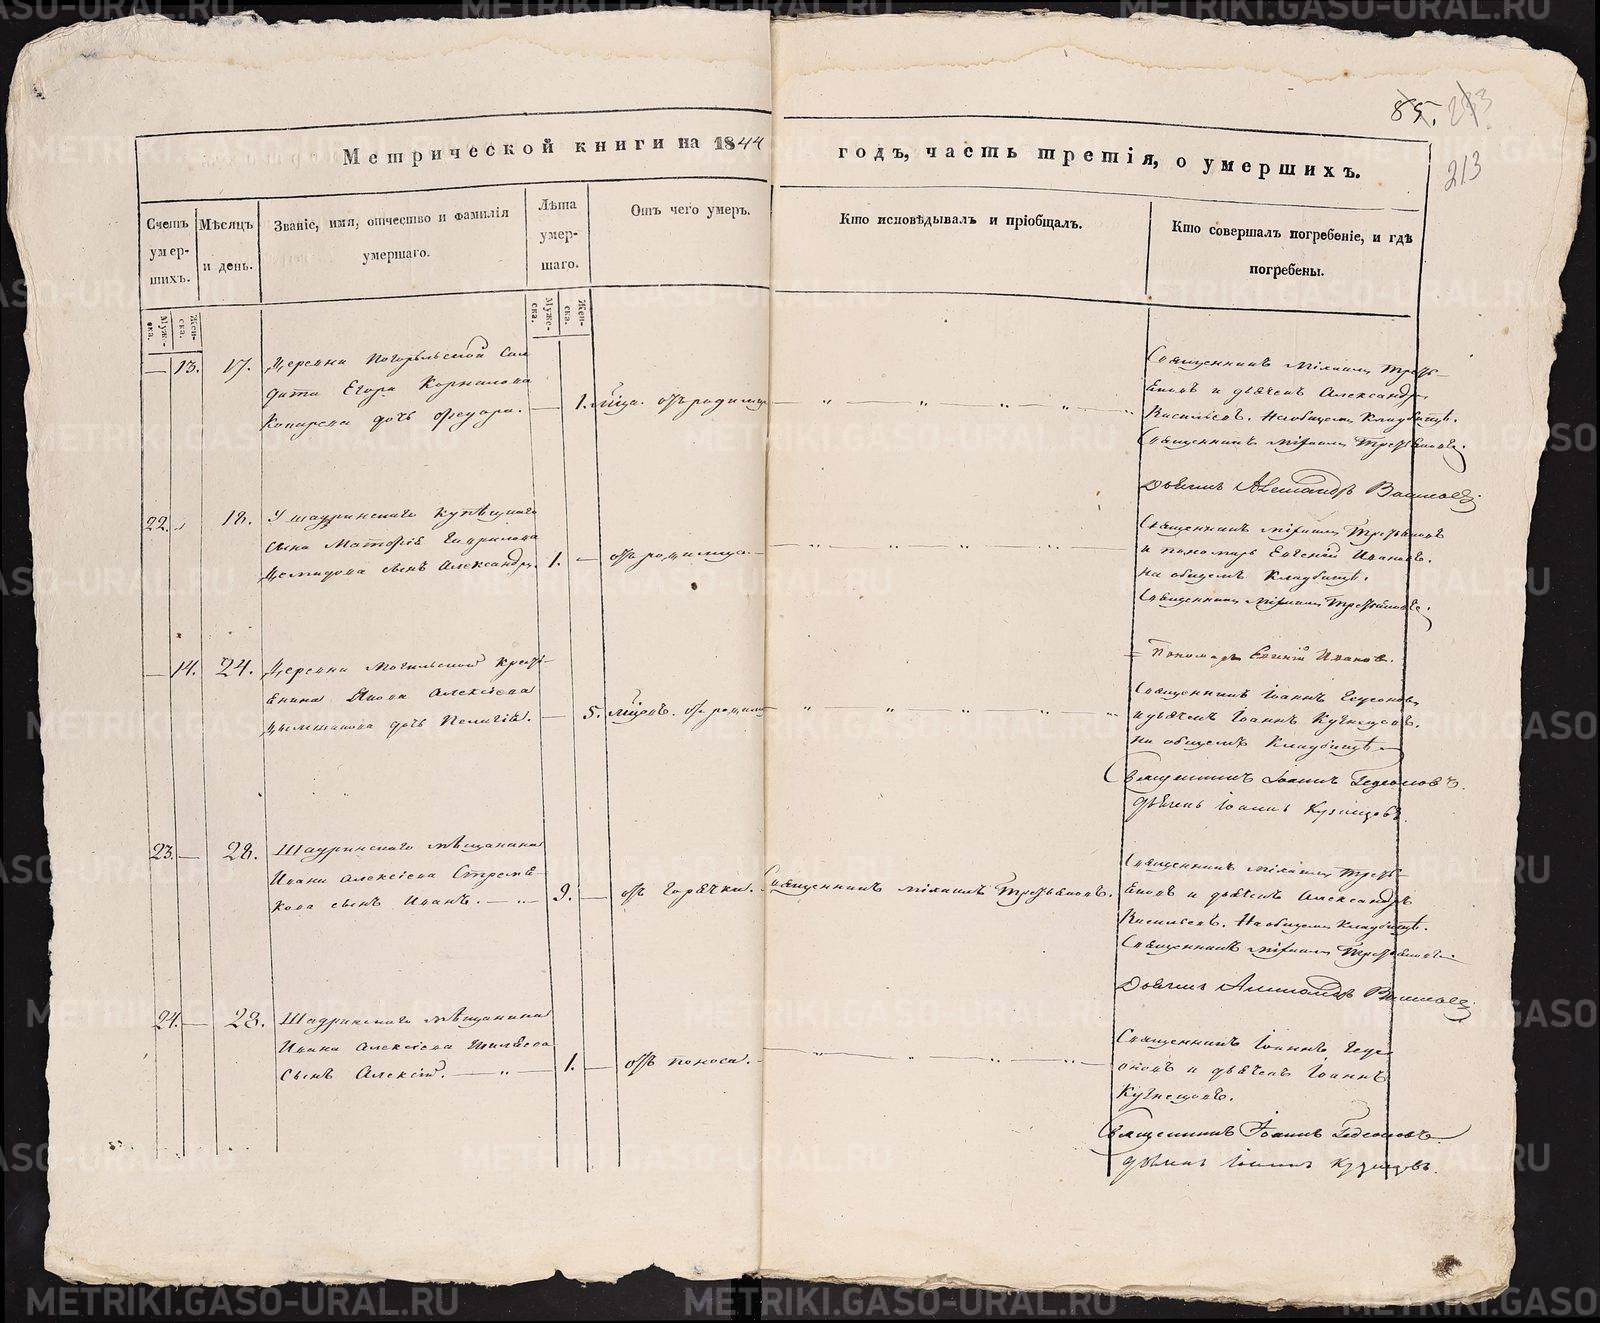 85. 213
213
Метрической книги на 1844 годъ, часть третія, о умершихъ.
Счетъ умер-шихъ.
Мѣсяцъ и день.
Званіе, имя, отчество и фамилія умершаго.
Лѣта умер-шаго.
Отъ чего умеръ.
Кто исповѣдывалъ и пріобщалъ.
Кто совершалъ погребеніе, и гдѣ погребены.
Муже-ска.
Жен-ска.
Муже-ска.
Жен-ска.
— 13. 17.
Деревни Погорѣльской Сол
дата Егора Корнилова
дочь Федора. — 1. мца. отъ родимца
Священникъ Михаилъ Треть-
яковъ и дьячекъ Александръ
Васильевъ. На общемъ кладбищѣ.
Священникъ Михаилъ Третьяковъ.
Дьячекъ Александръ Васильевъ
22. 18.
Сына Матфія Гаврилова
Демидова сынъ Александръ. 1. — отъ родимца —
Священникъ Михаилъ Третьяковъ
и пономарь Евгеній Ивановъ.
на общемъ кладбищѣ.
Священникъ Михаилъ Третьяковъ.
Пономарь Евгеній Ивановъ.
— 14. 24.
Деревни Могильской кресть-
янина Якова Алексіева
дочь Пелагія. — 5. мцовъ. отъ родимца
Священникъ Іоаннъ Гедеоновъ
и дьячекъ Іоаннъ Кузнецовъ.
на общемъ кладбищѣ
Священникъ Іоаннъ Гедеоновъ.
дьячекъ Іоаннъ Кузнецовъ.
23. — 28.
Шадринскаго мѣщанина
Ивана Алексіева
сынъ Иванъ. — 9. — отъ горячки. Священникъ Михаилъ Третьяковъ.
Священникъ Михаилъ Треть-
яковъ и дьячекъ Александръ
Васильевъ. На общемъ кладбищѣ.
Священникъ Михаилъ Третьяковъ.
Дьячекъ Александръ Васильевъ
24. — 28.
Шадринскаго мѣщанина
Ивана Алексіева
сынъ Алексій. — 1. — отъ поноса. —
Священникъ Іоаннъ Геде-
оновъ и дьячекъ Іоаннъ
Кузнецовъ.
Священникъ Іоаннъ Гедеоновъ
дьячекъ Іоаннъ Кузнецовъ.
METRIKI.GASO-URAL.RU